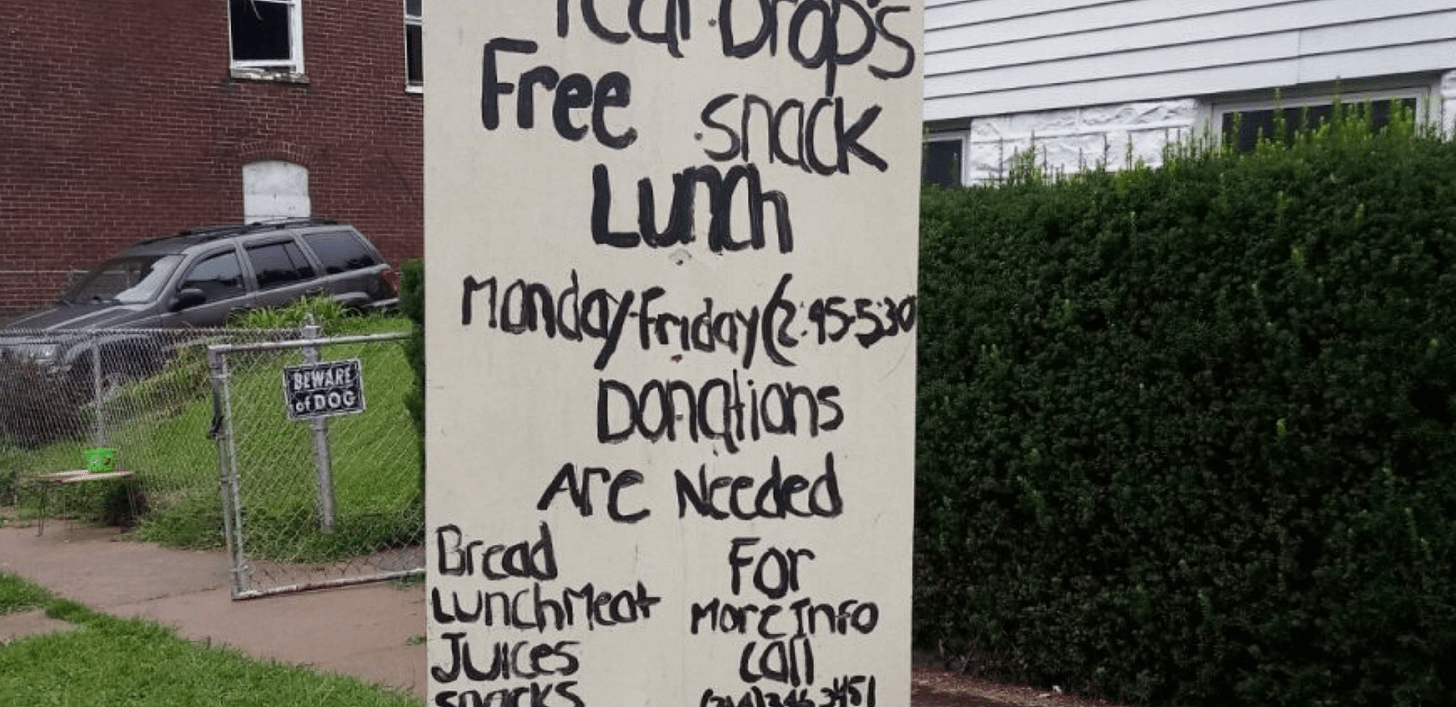 Tear Drop's
Free snack
Lunch
Monday-Friday (2:45-5:30
Donations
Are Needed
Bread
LunchMeat
Juices
snacks
For
More Info
Call
BEWARE
of DOG